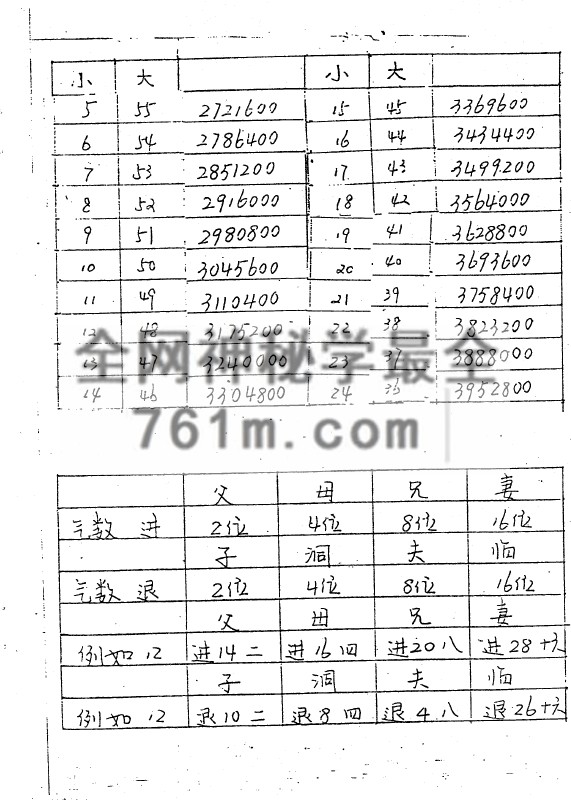 小 大 小 大
5 55 2721600 15 45 3369600
6 54 2786400 16 44 3434400
7 53 2851200 17 43 3499200
8 52 2916000 18 42 3564000
9 51 2980800 19 41 3628800
10 50 3045600 20 40 3693600
11 49 3110400 21 39 3758400
12 48 3175200 22 38 3823200
13 47 3240000 23 37 3888000
14 46 3304800 24 36 3952800
761m.com
父 母 兄 妻
气数 进 2位 4位 8位 16位
子 洞 夫 临
气数 退 2位 4位 8位 16位
父 母 兄 妻
例如12 进14 二 进16 四 进20 八 进28 十六
子 洞 夫 临
例如12 退10 二 退8 四 退4 八 退26 十六